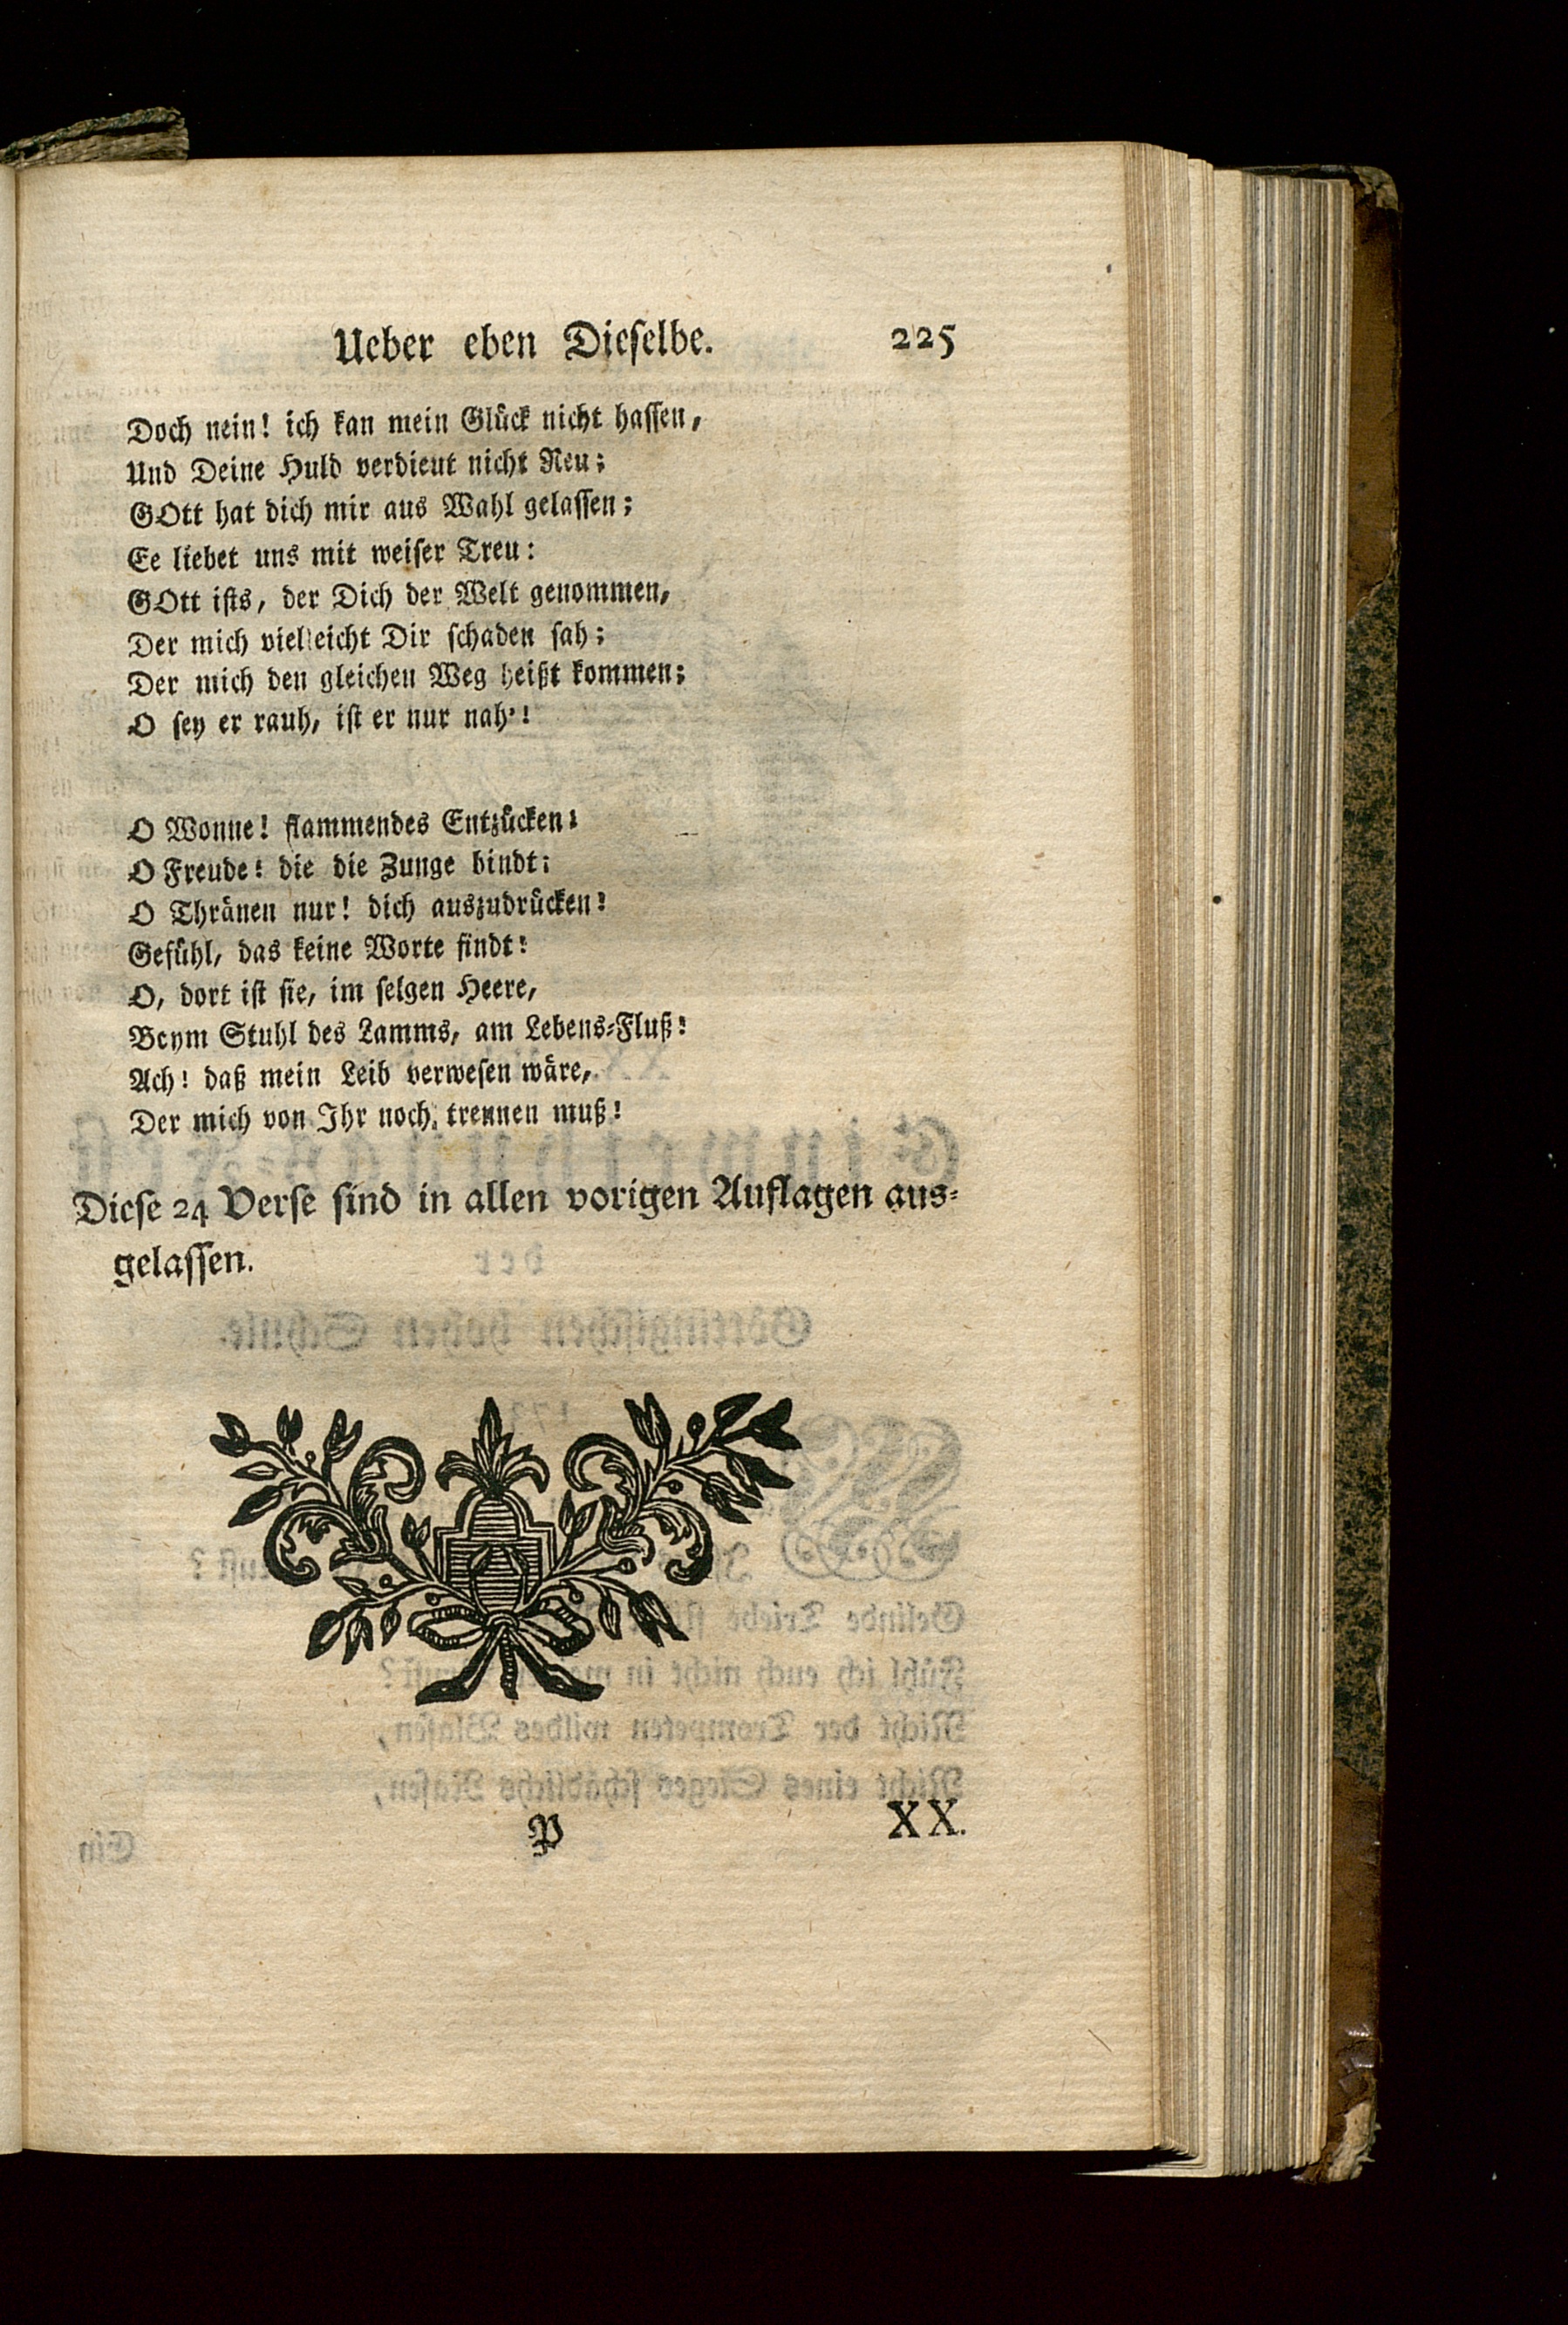 Ueber eben Dieselbe. 225
Doch nein! ich kan mein Glück nicht hassen,
Und Deine Huld verdient nicht Reu;
GOtt hat dich mir aus Wahl gelassen;
Ee liebet uns mit weiser Treu:
GOtt ists, der Dich der Welt genommen,
Der mich vielleicht Dir schaden sah;
Der mich den gleichen Weg heißt kommen;
O sey er rauh, ist er nur nah'!
O Wonne! flammendes Entzücken!
O Freude! die die Zunge bindt;
O Thränen nur! dich auszudrücken!
Gefühl, das keine Worte findt!
O, dort ist sie, im selgen Heere,
Beym Stuhl des Lamms, am Lebens-Fluß!
Ach! daß mein Leib verwesen wäre,
Der mich von Ihr noch trennen muß!
Diese 24 Verse sind in allen vorigen Auflagen aus-
gelassen.
P XX.